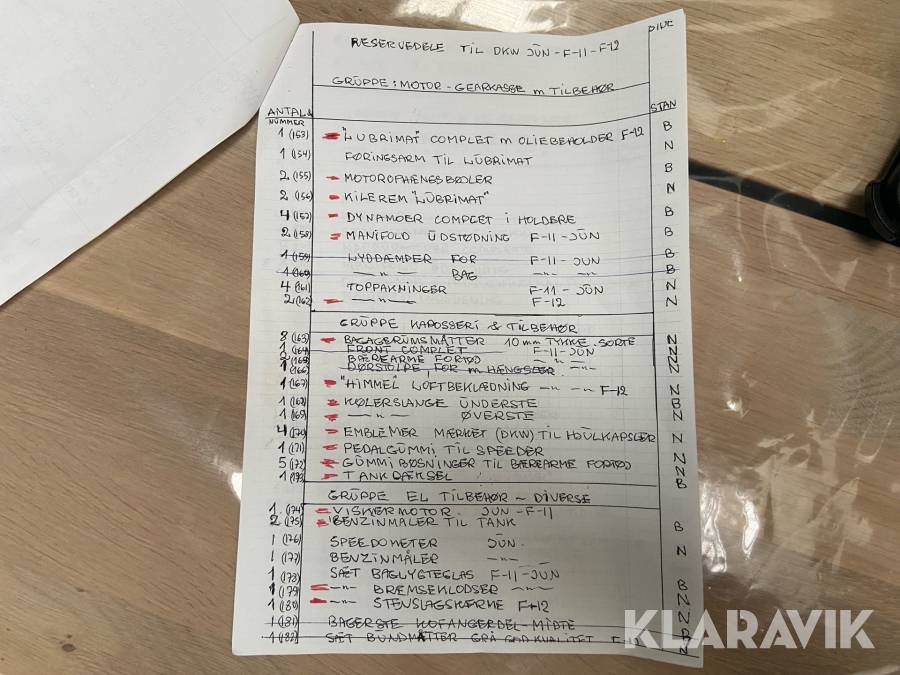 DIV.
RESERVEDELE TIL DKW JŪN - F-11 - F-12
GRŪPPE: MOTOR - GEARKASSE m TILBEHØR
ANTAL & STAN
NŪMMER
1 (153) "LŪBRIMAT" COMPLET m OLIEBEHOLDER F-12 B
1 (154) FØRINGSARM TIL LŪBRIMAT N
2 (155) MOTOROPHÆNGSBØJLER B
2 (156) KILEREM "LŪBRIMAT" N
4 (157) DYNAMOER COMPLET I HOLDERE B
2 (158) MANIFOLD ŪDSTØDNING F-11 - JŪN B
1 (159) LYDDÆMPER FOR F-11 - JŪN B
1 (160) -"- BAG -"- -"- B
4 (161) TOPPAKNINGER F-11 - JŪN N
2 (162) -"- F-12 N
GRŪPPE KAROSSERI & TILBEHØR
8 (163) BAGAGERŪMSMÅTTER 10 mm TYKKE SORTE N
1 (164) FRONT COMPLET F-11 - JŪN N
2 (165) BÆREARME FORTØJ -"- -"- N
1 (166) DØRSTOLPE, FOR m HÆNGSLER -"- N
1 (167) "HIMMEL" LOFTBEKLÆDNING -"- -"- F-12 N
1 (168) KØLERSLANGE ŪNDERSTE B
1 (169) -"- ØVERSTE N
4 (170) EMBLEMER MÆRKET (DKW) TIL HJŪLKAPSLER N
1 (171) PEDALGŪMMI TIL SPEEDER N
5 (172) GŪMMIBØSNINGER TIL BÆREARME FORTØJ N
1 (173) TANKDÆKSEL B
GRŪPPE EL TILBEHØR - DIVERSE
1 (174) VISKERMOTOR JŪN - F-11
2 (175) BENZINMÅLER TIL TANK B
1 (176) SPEEDOMETER JŪN.
1 (177) BENZINMÅLER -"- N
1 (178) SÆT BAGLYGTEGLAS F-11 - JŪN
1 (179) -"- BREMSEKLODSER -"- B
1 (180) -"- STENSLAGSKÆRME F-12 N
1 (181) BAGERSTE KOFANGERDEL - MIDTE N
1 (182) SÆT BUNDMÅTTER GRÅ GOD KVALITET F-12 N
KLARAVIK